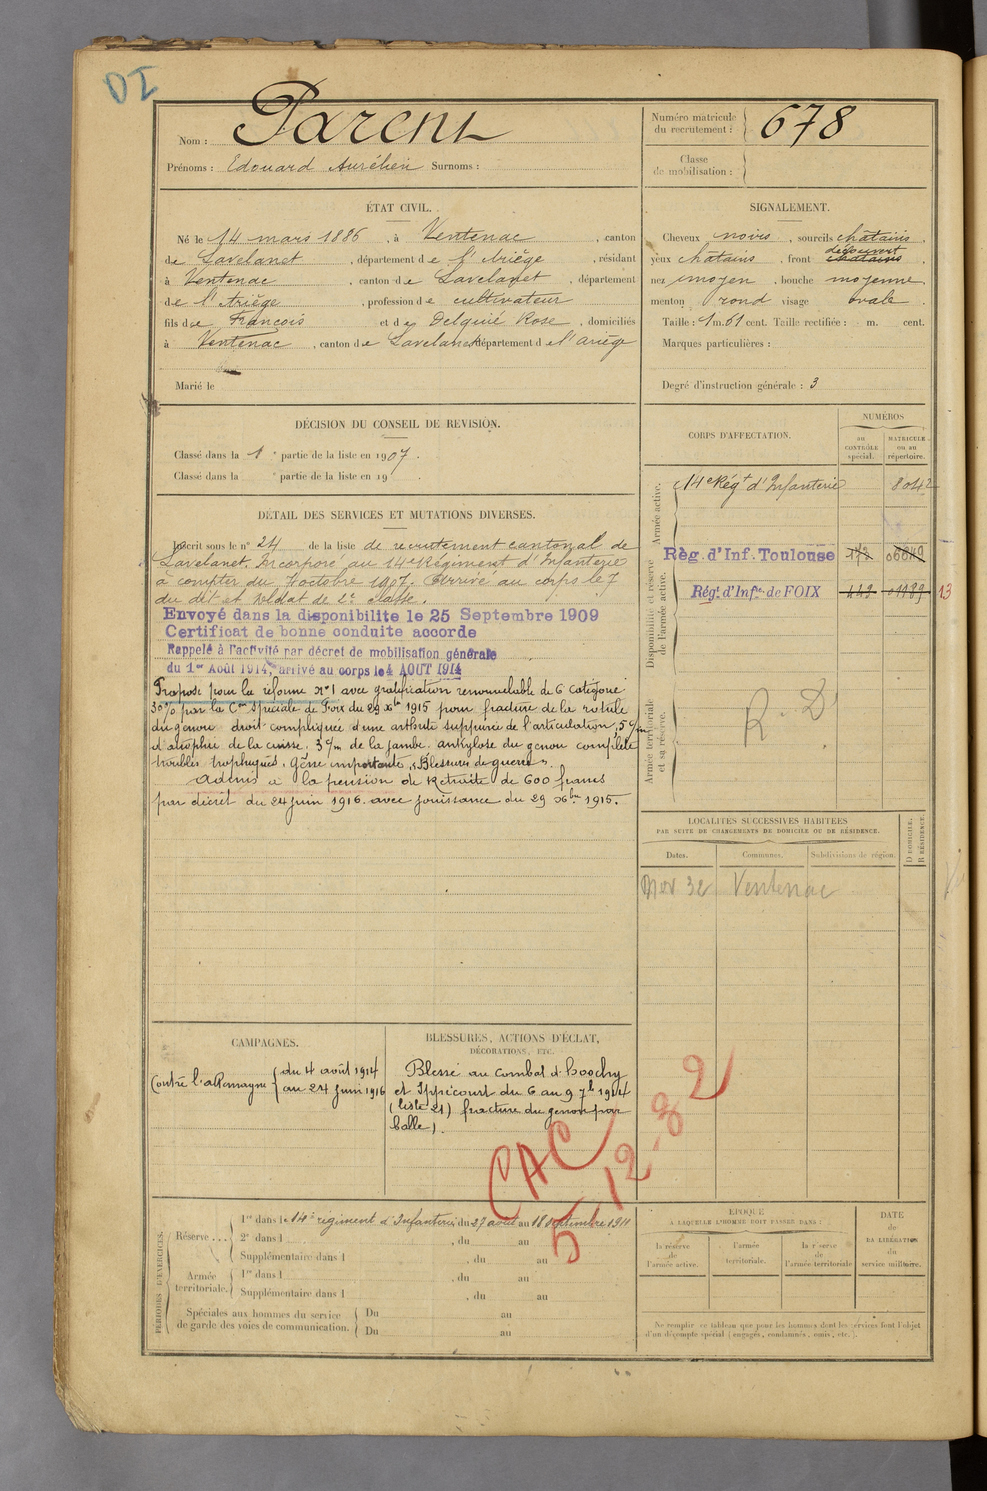 DI
Nom : Parent
Prénoms : Edouard Aurélien Surnoms :
Numéro matricule
du recrutement : 678
Classe
de mobilisation :
ÉTAT CIVIL.
Né le 14 mars 1886, à Ventenac, canton
de Lavelanet, département de l'Ariège, résidant
à Ventenac, canton de Lavelanet, département
de l'Ariège, profession de cultivateur
fils de François et de Delquié Rose, domiciliés
à Ventenac, canton de Lavelanet département de l'Ariège
Marié le
SIGNALEMENT.
Cheveux noirs, sourcils châtains,
découvert
yeux châtains, front châtains,
nez moyen, bouche moyenne,
menton rond visage ovale
Taille : 1 m. 61 cent. Taille rectifiée : m. cent.
Marques particulières :
Degré d'instruction générale : 3
DÉCISION DU CONSEIL DE REVISION.
Classé dans la 1e partie de la liste en 1907.
Classé dans la e partie de la liste en 19
DÉTAIL DES SERVICES ET MUTATIONS DIVERSES.
Inscrit sous le n° 24 de la liste de recrutement cantonal de
Lavelanet. Incorporé au 14e Régiment d'Infanterie
à compter du 7 octobre 1907. Arrivé au corps le 7
du dit et soldat de 2e classe.
Envoyé dans la disponibilite le 25 Septembre 1909
Certificat de bonne conduite accorde
Rappelé à l'activité par décret de mobilisation générale
du 1er Août 1914, arrivé au corps le 4 AOUT 1914
Proposé pour la réforme n°1 avec gratification renouvelable de 6e catégorie
30% par la Con spéciale de Foix du 29 Xbre 1915 pour fracture de la rotule
du genou droit compliquée d'une arthrite suppurée de l'articulation, 5 c/m
d'atrophie de la cuisse, 3 c/m de la jambe. ankylose du genou complète
troubles trophiques. Gêne importante. "Blessures de guerre".
Admis à la pension de Retraite de 600 francs
par décret du 24 juin 1916 avec jouissance du 29 Xbre 1915.
CORPS D'AFFECTATION.
NUMÉROS
au CONTRÔLE spécial.
MATRICULE ou au répertoire.
Armée active.
14e Régt d'Infanterie 8042
Disponibilité et réserve de l'armée active.
Rég. d'Inf. Toulouse 172 06849
Régt d'Infie de FOIX 449 01189 13
Armée territoriale et sa réserve.
R. D.
LOCALITÉS SUCCESSIVES HABITÉES
PAR SUITE DE CHANGEMENTS DE DOMICILE OU DE RÉSIDENCE.
Dates. Communes. Subdivisions de région. D DOMICILE. R RÉSIDENCE.
Nov 32 Ventenac
CAMPAGNES.
Contre l'Allemagne du 4 août 1914
au 24 juin 1916
BLESSURES, ACTIONS D'ÉCLAT,
DÉCORATIONS, ETC.
Blessé au combat d'
et Ippécourt du 6 au 9 7bre 1914
(liste 21) fracture du genou par
balle).
CAC
5-12-32
PÉRIODES D'EXERCICES.
Réserve... 1re dans le 14e régiment d'Infanterie, du 27 août au 18 septembre 1911
2e dans l , du au
Supplémentaire dans l , du au
Armée territoriale. 1re dans l , du au
Supplémentaire dans l , du au
Spéciales aux hommes du service Du au
de garde des voies de communication. Du au
ÉPOQUE
À LAQUELLE L'HOMME DOIT PASSER DANS :
la réserve de l'armée active.
l'armée territoriale.
la réserve de l'armée territoriale
DATE de LA LIBÉRATION du service militaire.
Ne remplir ce tableau que pour les hommes dont les services font l'objet
d'un décompte spécial (engagés, condamnés, omis, etc.).